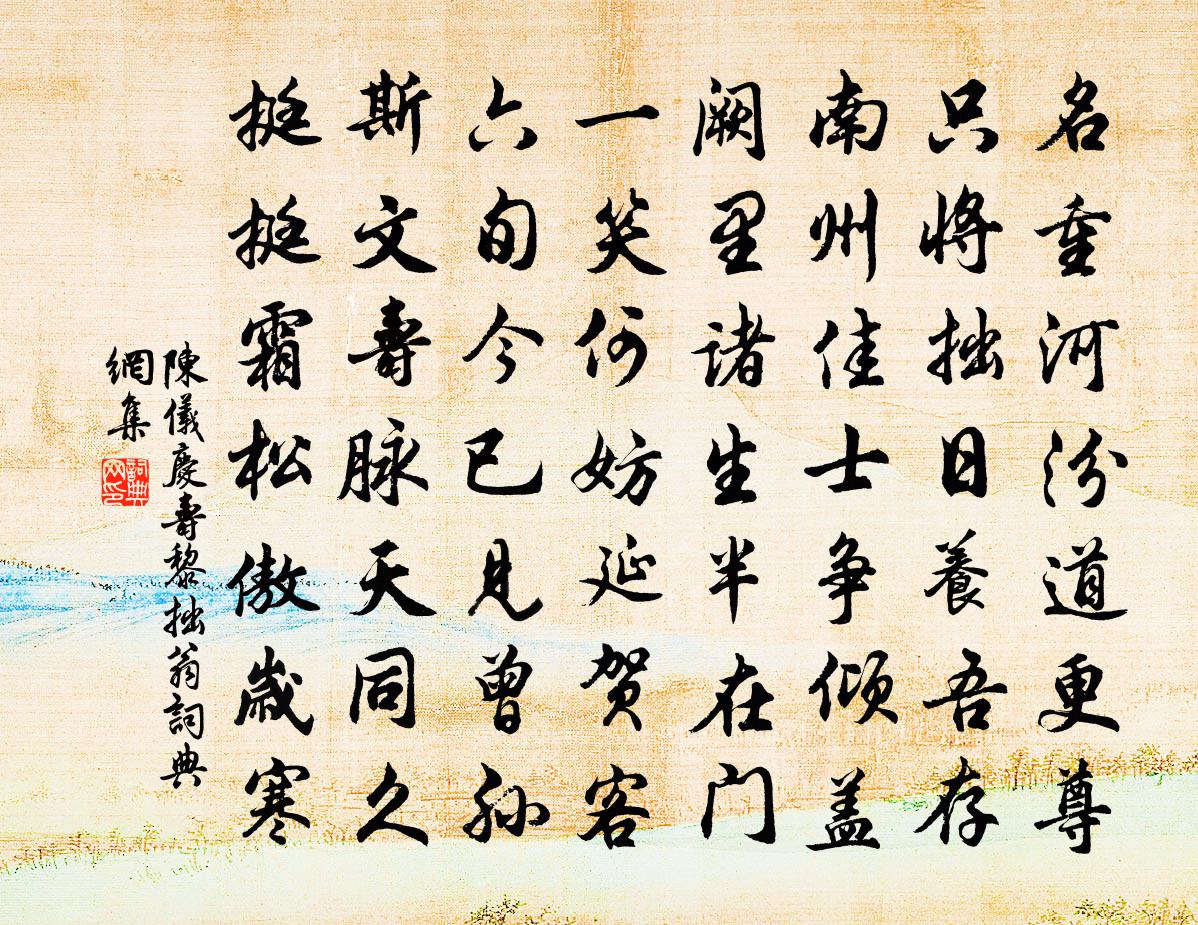 名重河汾道更尊
只將拙日養吾存
南州佳士争傾盖
阙里诸生半在门
一笑何妨延贺客
六旬今已見曾孙
斯文壽脉天同久
挺挺霜松傲歲寒
陳儀慶壽黎拙翁詞典
網集
詞典網印